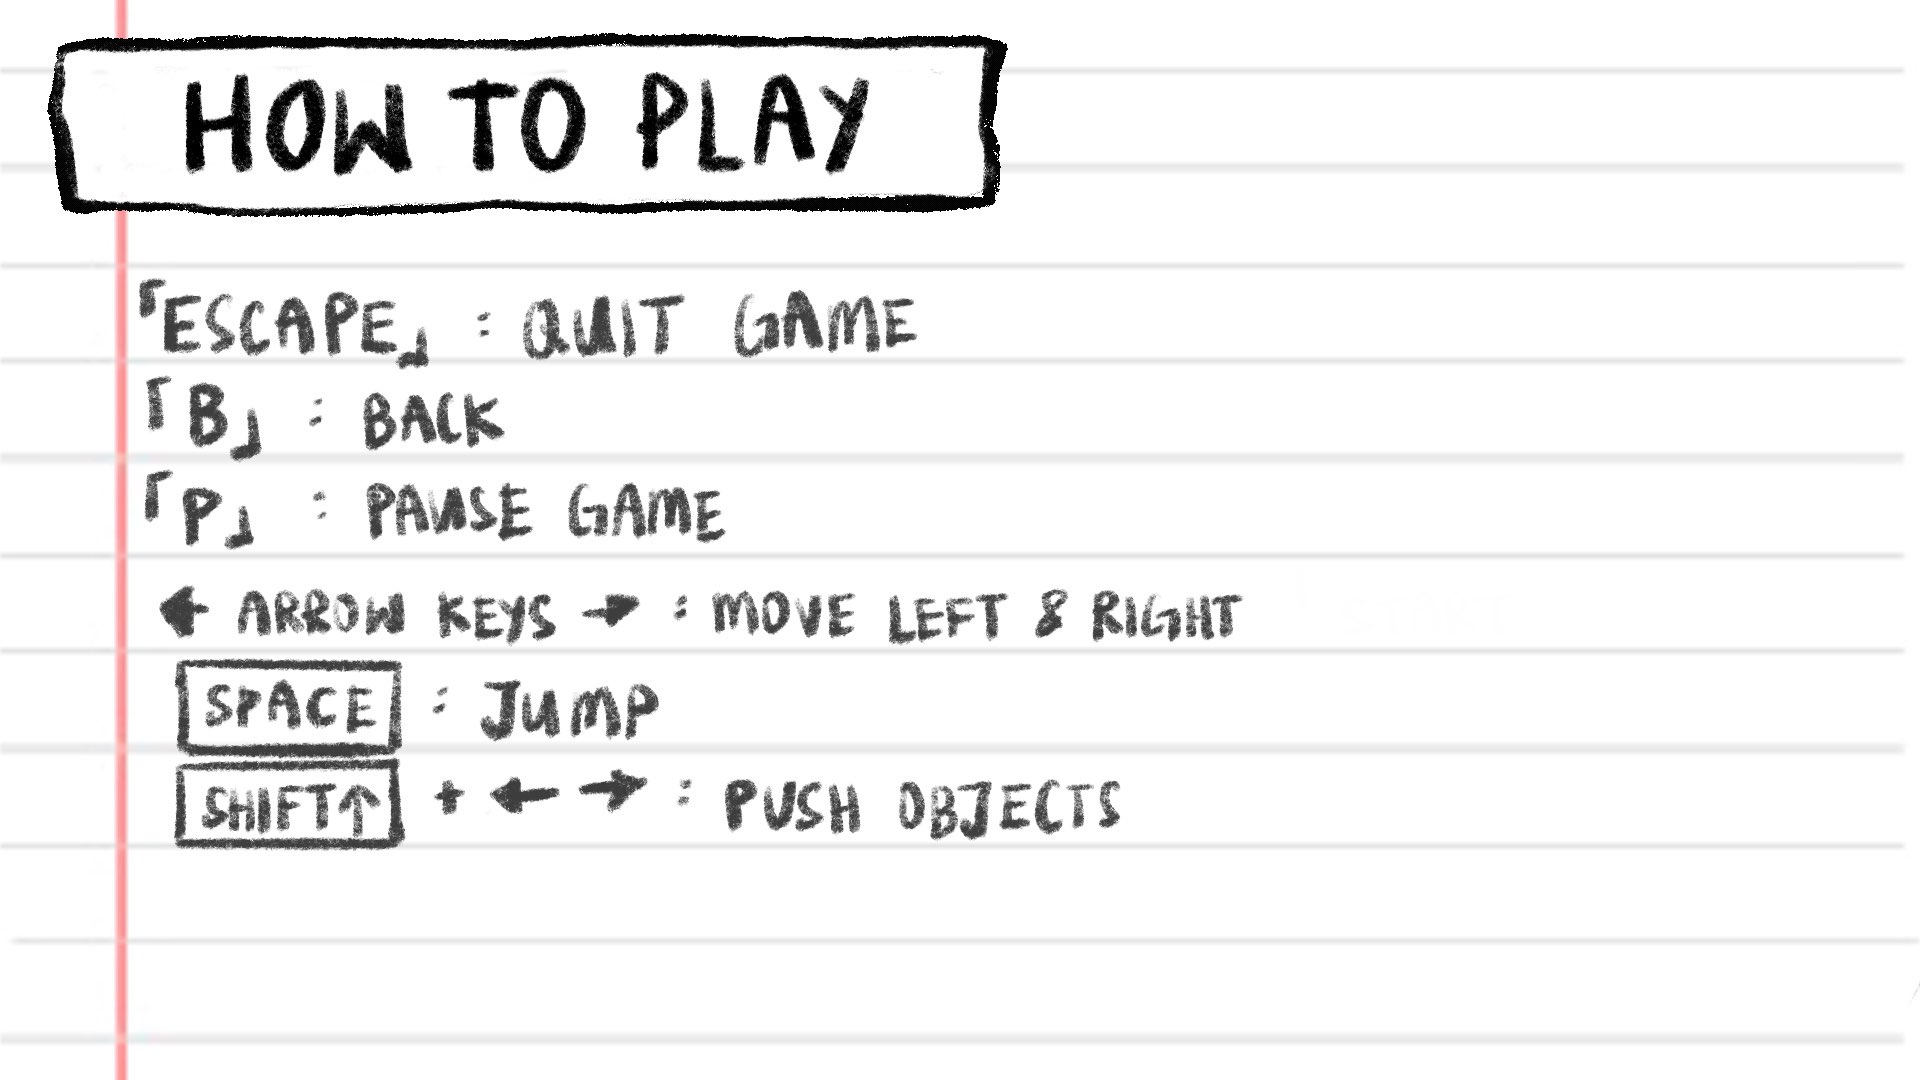 HOW TO PLAY
「ESCAPE」 : QUIT GAME
「B」 : BACK
「P」 : PAUSE GAME
← ARROW KEYS → : MOVE LEFT & RIGHT
SPACE : JUMP
SHIFT↑ + ← → : PUSH OBJECTS